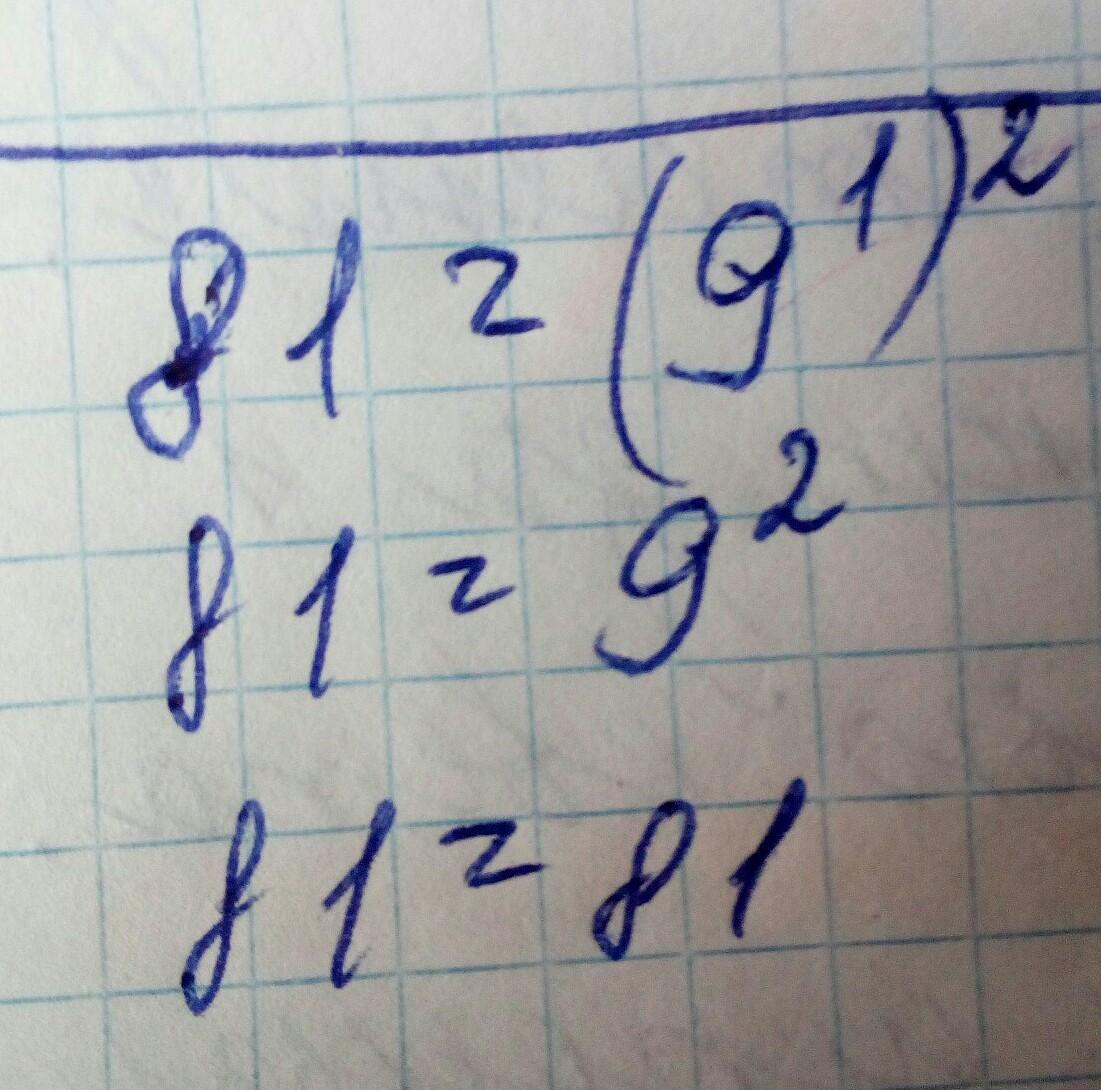 81 = (9¹)²
81 = 9²
81 = 81